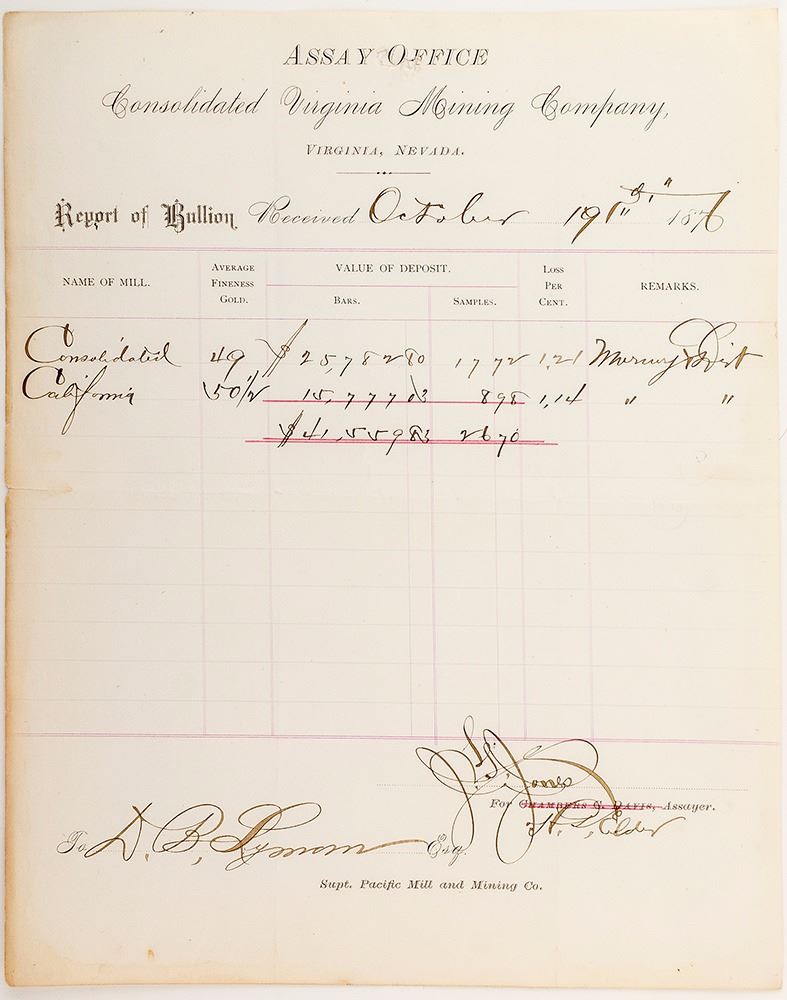 ASSAY OFFICE
Consolidated Virginia Mining Company,
VIRGINIA, NEVADA.
Report of Bullion Received October 19th 1876
NAME OF MILL. AVERAGE FINENESS GOLD. VALUE OF DEPOSIT. BARS. SAMPLES. LOSS PER CENT. REMARKS.
Consolidated 49 $ 25,782 80 17 72 1,21 Mercury Dist
California 50 1/2 15,777 03 8 98 1,14 " "
$ 41,559 83 26 70
J. S. Jones
For CHAMBERS C. DAVIS, Assayer.
H. L. Elder
To D. B. Lyman Esq.
Supt. Pacific Mill and Mining Co.